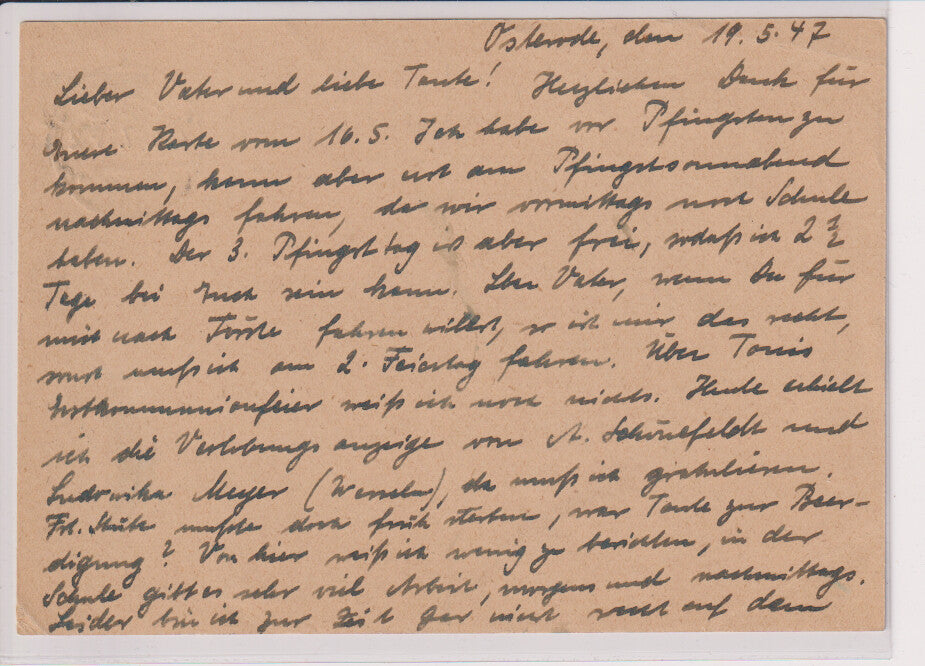 Osterode, den 19.5.47
Lieber Vater und liebe Tante! Herzlichen Dank für
Eure Karte vom 16.5. Ich habe vor Pfingsten zu
kommen, kann aber erst am Pfingstsonnabend
nachmittags fahren, da wir vormittags noch Schule
haben. Der 3. Pfingsttag ist aber frei, sodaß ich 2 1/2
Tage bei Euch sein kann. Lber Vater, wenn Du für
mich nach Förste fahren willst, so ist mir das recht,
sonst muß ich am 2. Feiertag fahren. Über Tonis
Erstkommunionfeier weiß ich noch nichts. Heute erhielt
ich die Verlobungsanzeige von A. Schönefeldt und
Ludowika Meyer ( ), da muß ich gratulieren.
Frl. mußte doch früh sterben, war Tante zur Beer-
digung? Von hier weiß ich wenig zu berichten, in der
Schule gibt es sehr viel Arbeit, morgens und nachmittags.
Leider bin ich zur Zeit gar nicht recht auf dem